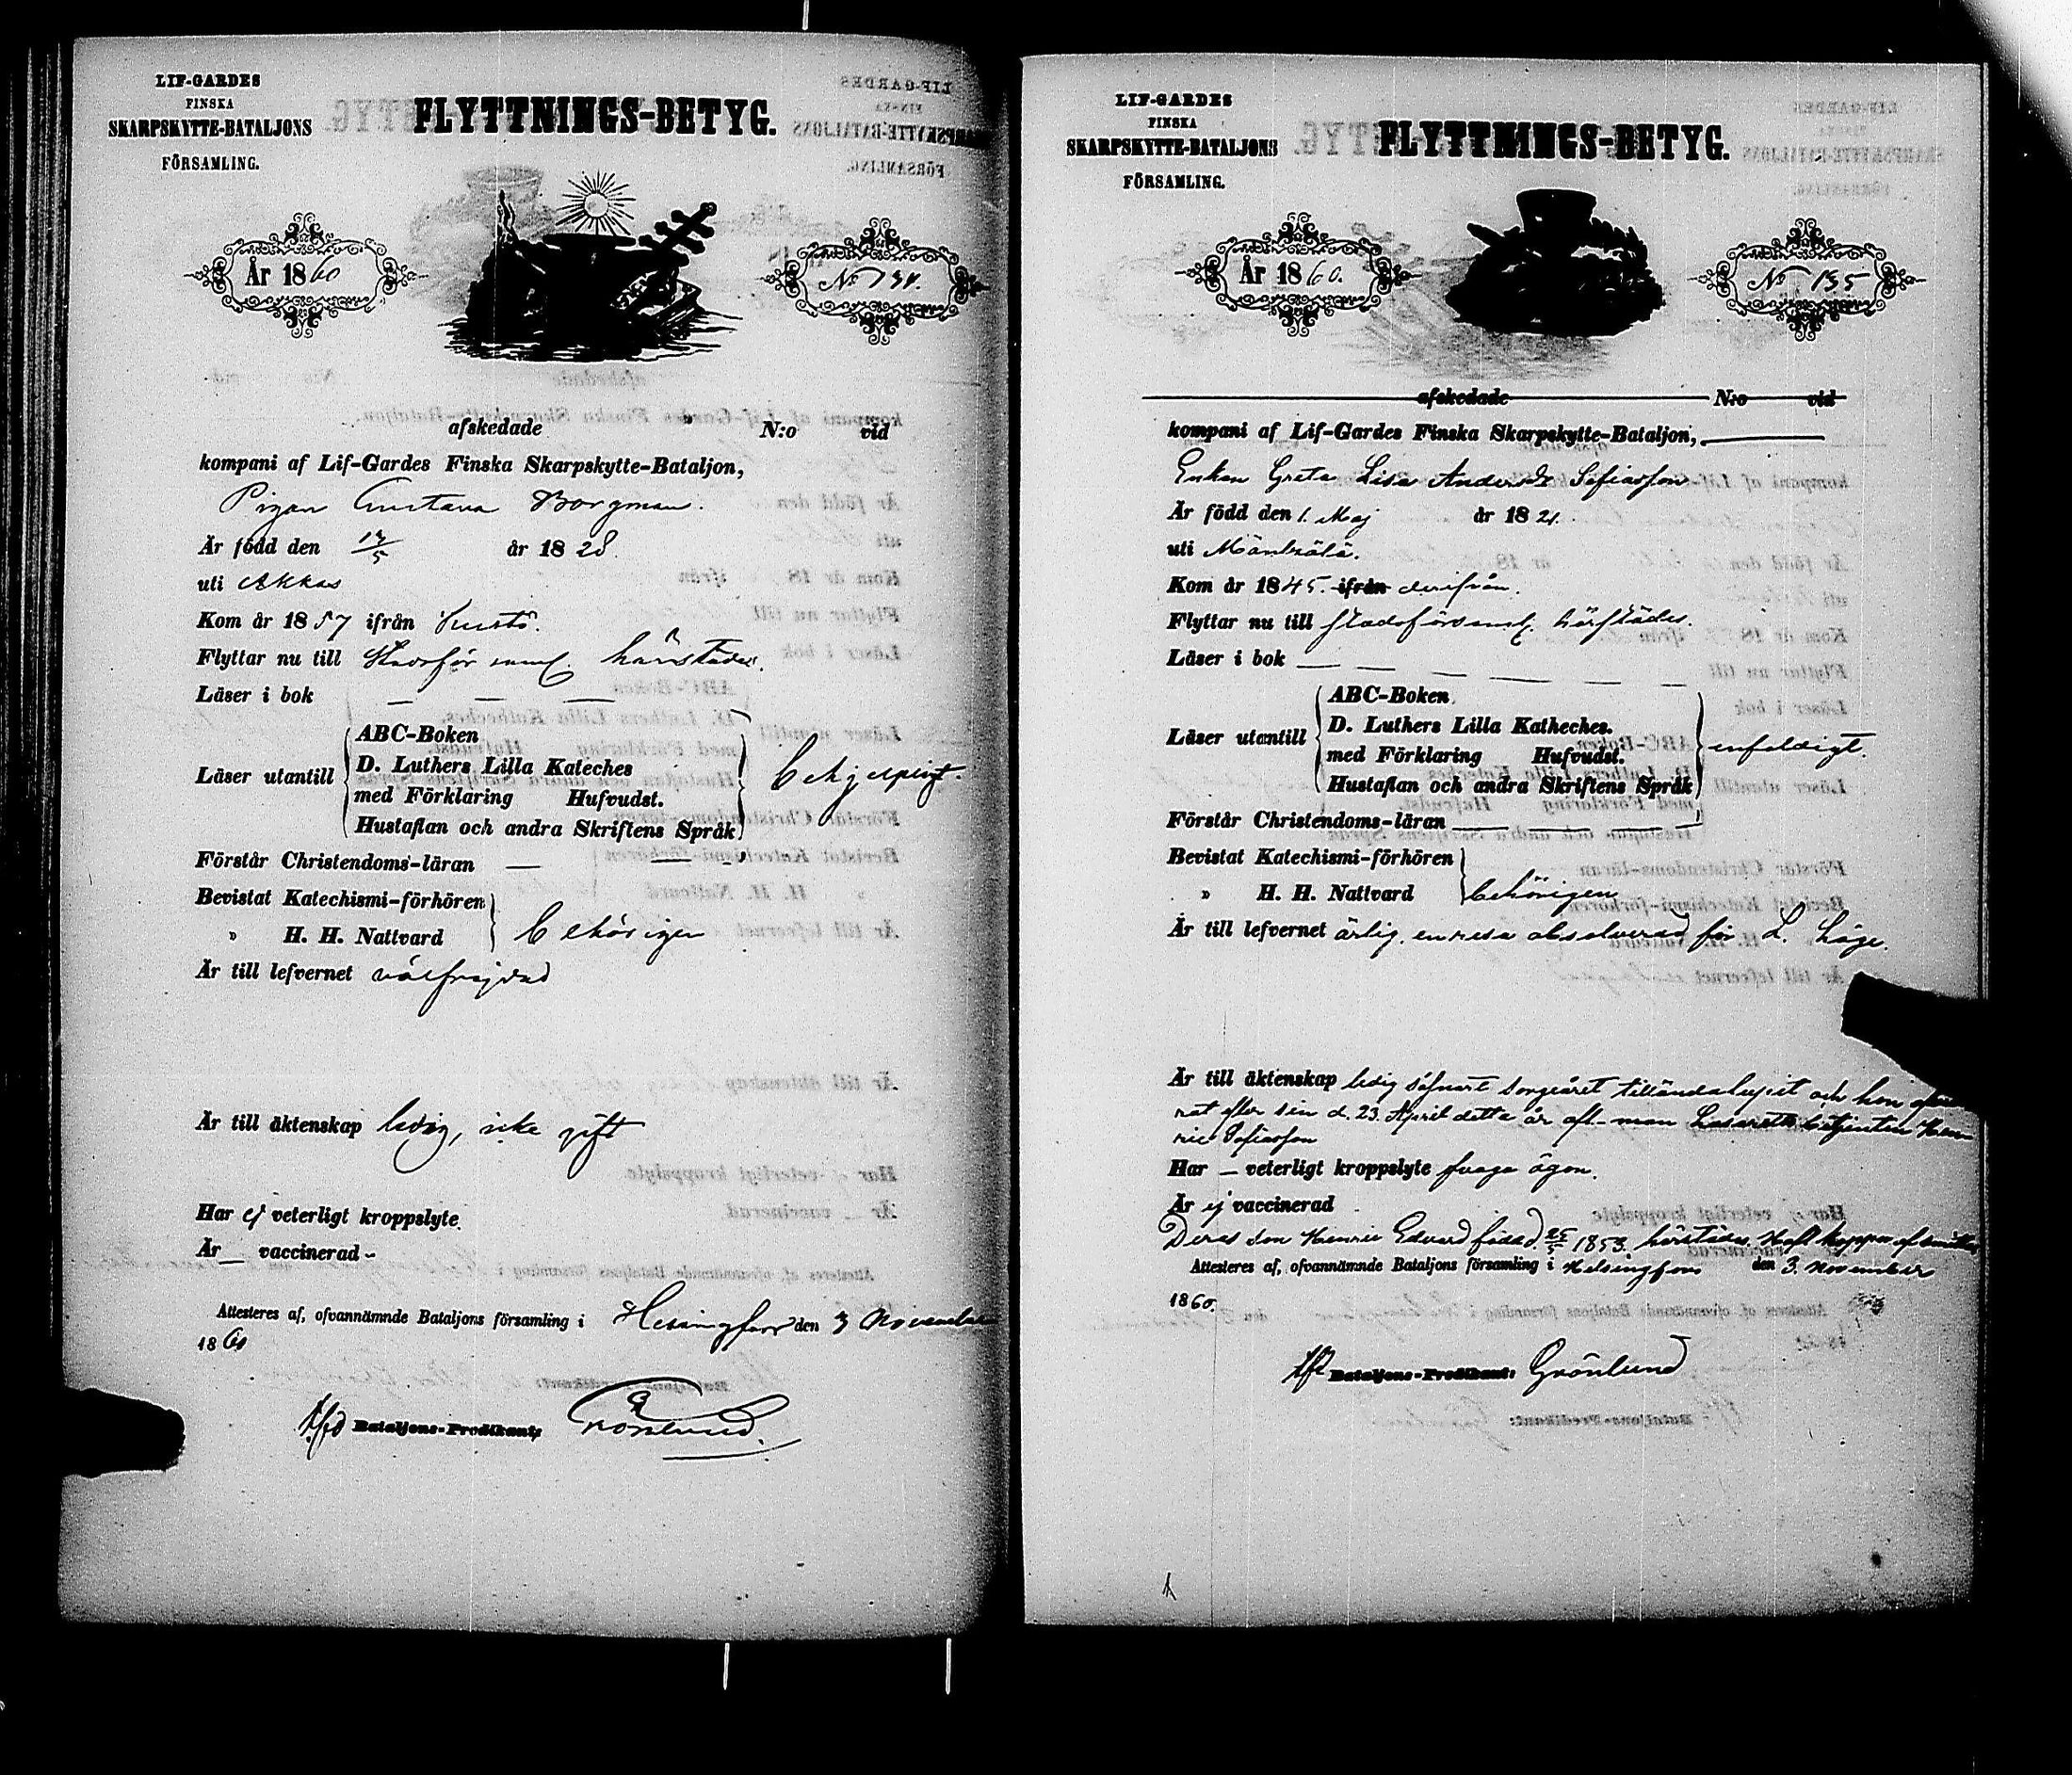 LIF-GARDES
FINSKA
SKARPSKYTTE-BATALJONS
FÖRSAMLING.
FLYTTNINGS-BETYG.
År 1860
No 134.
afskedade N:o vid
kompani af Lif-Gardes Finska Skarpskytte-Bataljon,
Pigan Gustava Borgman.
Är född den 17/5 år 1828.
uti Akkas
Kom år 1857 ifrån
Flyttar nu till Stadsförsaml. härstädes.
Läser i bok — — —
Läser utantill
ABC-Boken
D. Luthers Lilla Kateches
med Förklaring Hufvudst.
Hustaflan och andra Skriftens Språk
behjelpligt.
Förstår Christendoms-läran — —
Bevistat Katechismi-förhören
» H. H. Nattvard
behörigen
Är till lefvernet välfrejdad
Är till äktenskap ledig, icke gift
Har ej veterligt kroppslyte.
Är — vaccinerad –
Attesteres af, ofvannämnde Bataljons församling i Helsingfors den 3 November
1860
Bataljons-Predikant: Grönlund.
LIF-GARDES
FINSKA
SKARPSKYTTE-BATALJONS
FÖRSAMLING.
FLYTTNINGS-BETYG.
År 1860.
No 135
afskedade N:o vid
kompani af Lif-Gardes Finska Skarpskytte-Bataljon,
Enkan Greta Lisa Andersdr Sofiasson
Är född den 1. Maj år 1821.
uti Mäntsälä.
Kom år 1845. ifrån derifrån.
Flyttar nu till stadsförsaml. härstädes.
Läser i bok — — — — —
Läser utantill
ABC-Boken
D. Luthers Lilla Katheches.
med Förklaring Hufvudst.
Hustaflan och andra Skriftens Språk
enfaldigt.
Förstår Christendoms-läran — — —
Bevistat Katechismi-förhören
» H. H. Nattvard
behörigen
Är till lefvernet ärlig. en resa absolverad för L. Läge.
Är till äktenskap ledig såsnart sorgeåret tilländalupit och hon
rat efter sin d. 23. April detta år afl. man Lasaretts betjenten Hen
ric Sofiasson
Har — veterligt kroppslyte svaga ögon.
Är ej vaccinerad
Deras son Henric Edvard född d. 25/5 1853. härstädes. Haft koppor af
Attesteres af, ofvannämnde Bataljons församling i Helsingfors den 3. November
1860.
Bataljons-Predikant: Grönlund